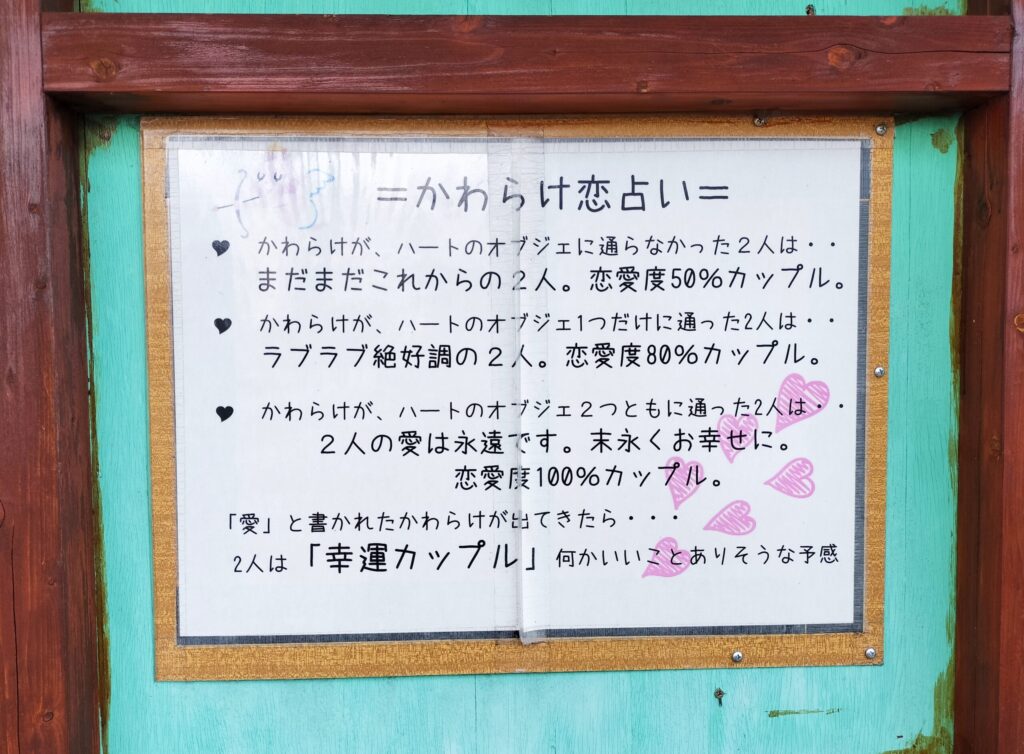 =かわらけ恋占い=
♥ かわらけが、ハートのオブジェに通らなかった２人は・・
まだまだこれからの２人。恋愛度50%カップル。
♥ かわらけが、ハートのオブジェ1つだけに通った2人は・・
ラブラブ絶好調の２人。恋愛度80%カップル。
♥ かわらけが、ハートのオブジェ２つともに通った2人は・・
２人の愛は永遠です。末永くお幸せに。
恋愛度100%カップル。
「愛」と書かれたかわらけが出てきたら・・・
2人は「幸運カップル」何かいいことありそうな予感